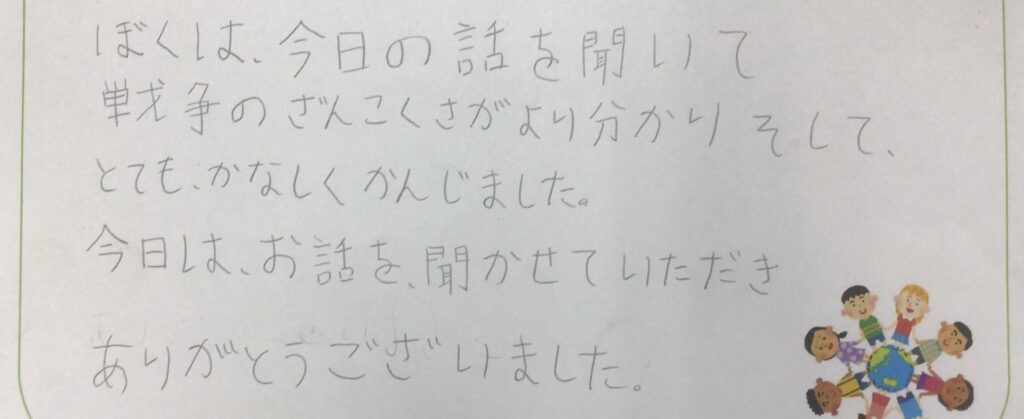 ぼくは、今日の話を聞いて
戦争のざんこくさがより分かりそして、
とても、かなしくかんじました。
今日は、お話を、聞かせていただき
ありがとうございました。